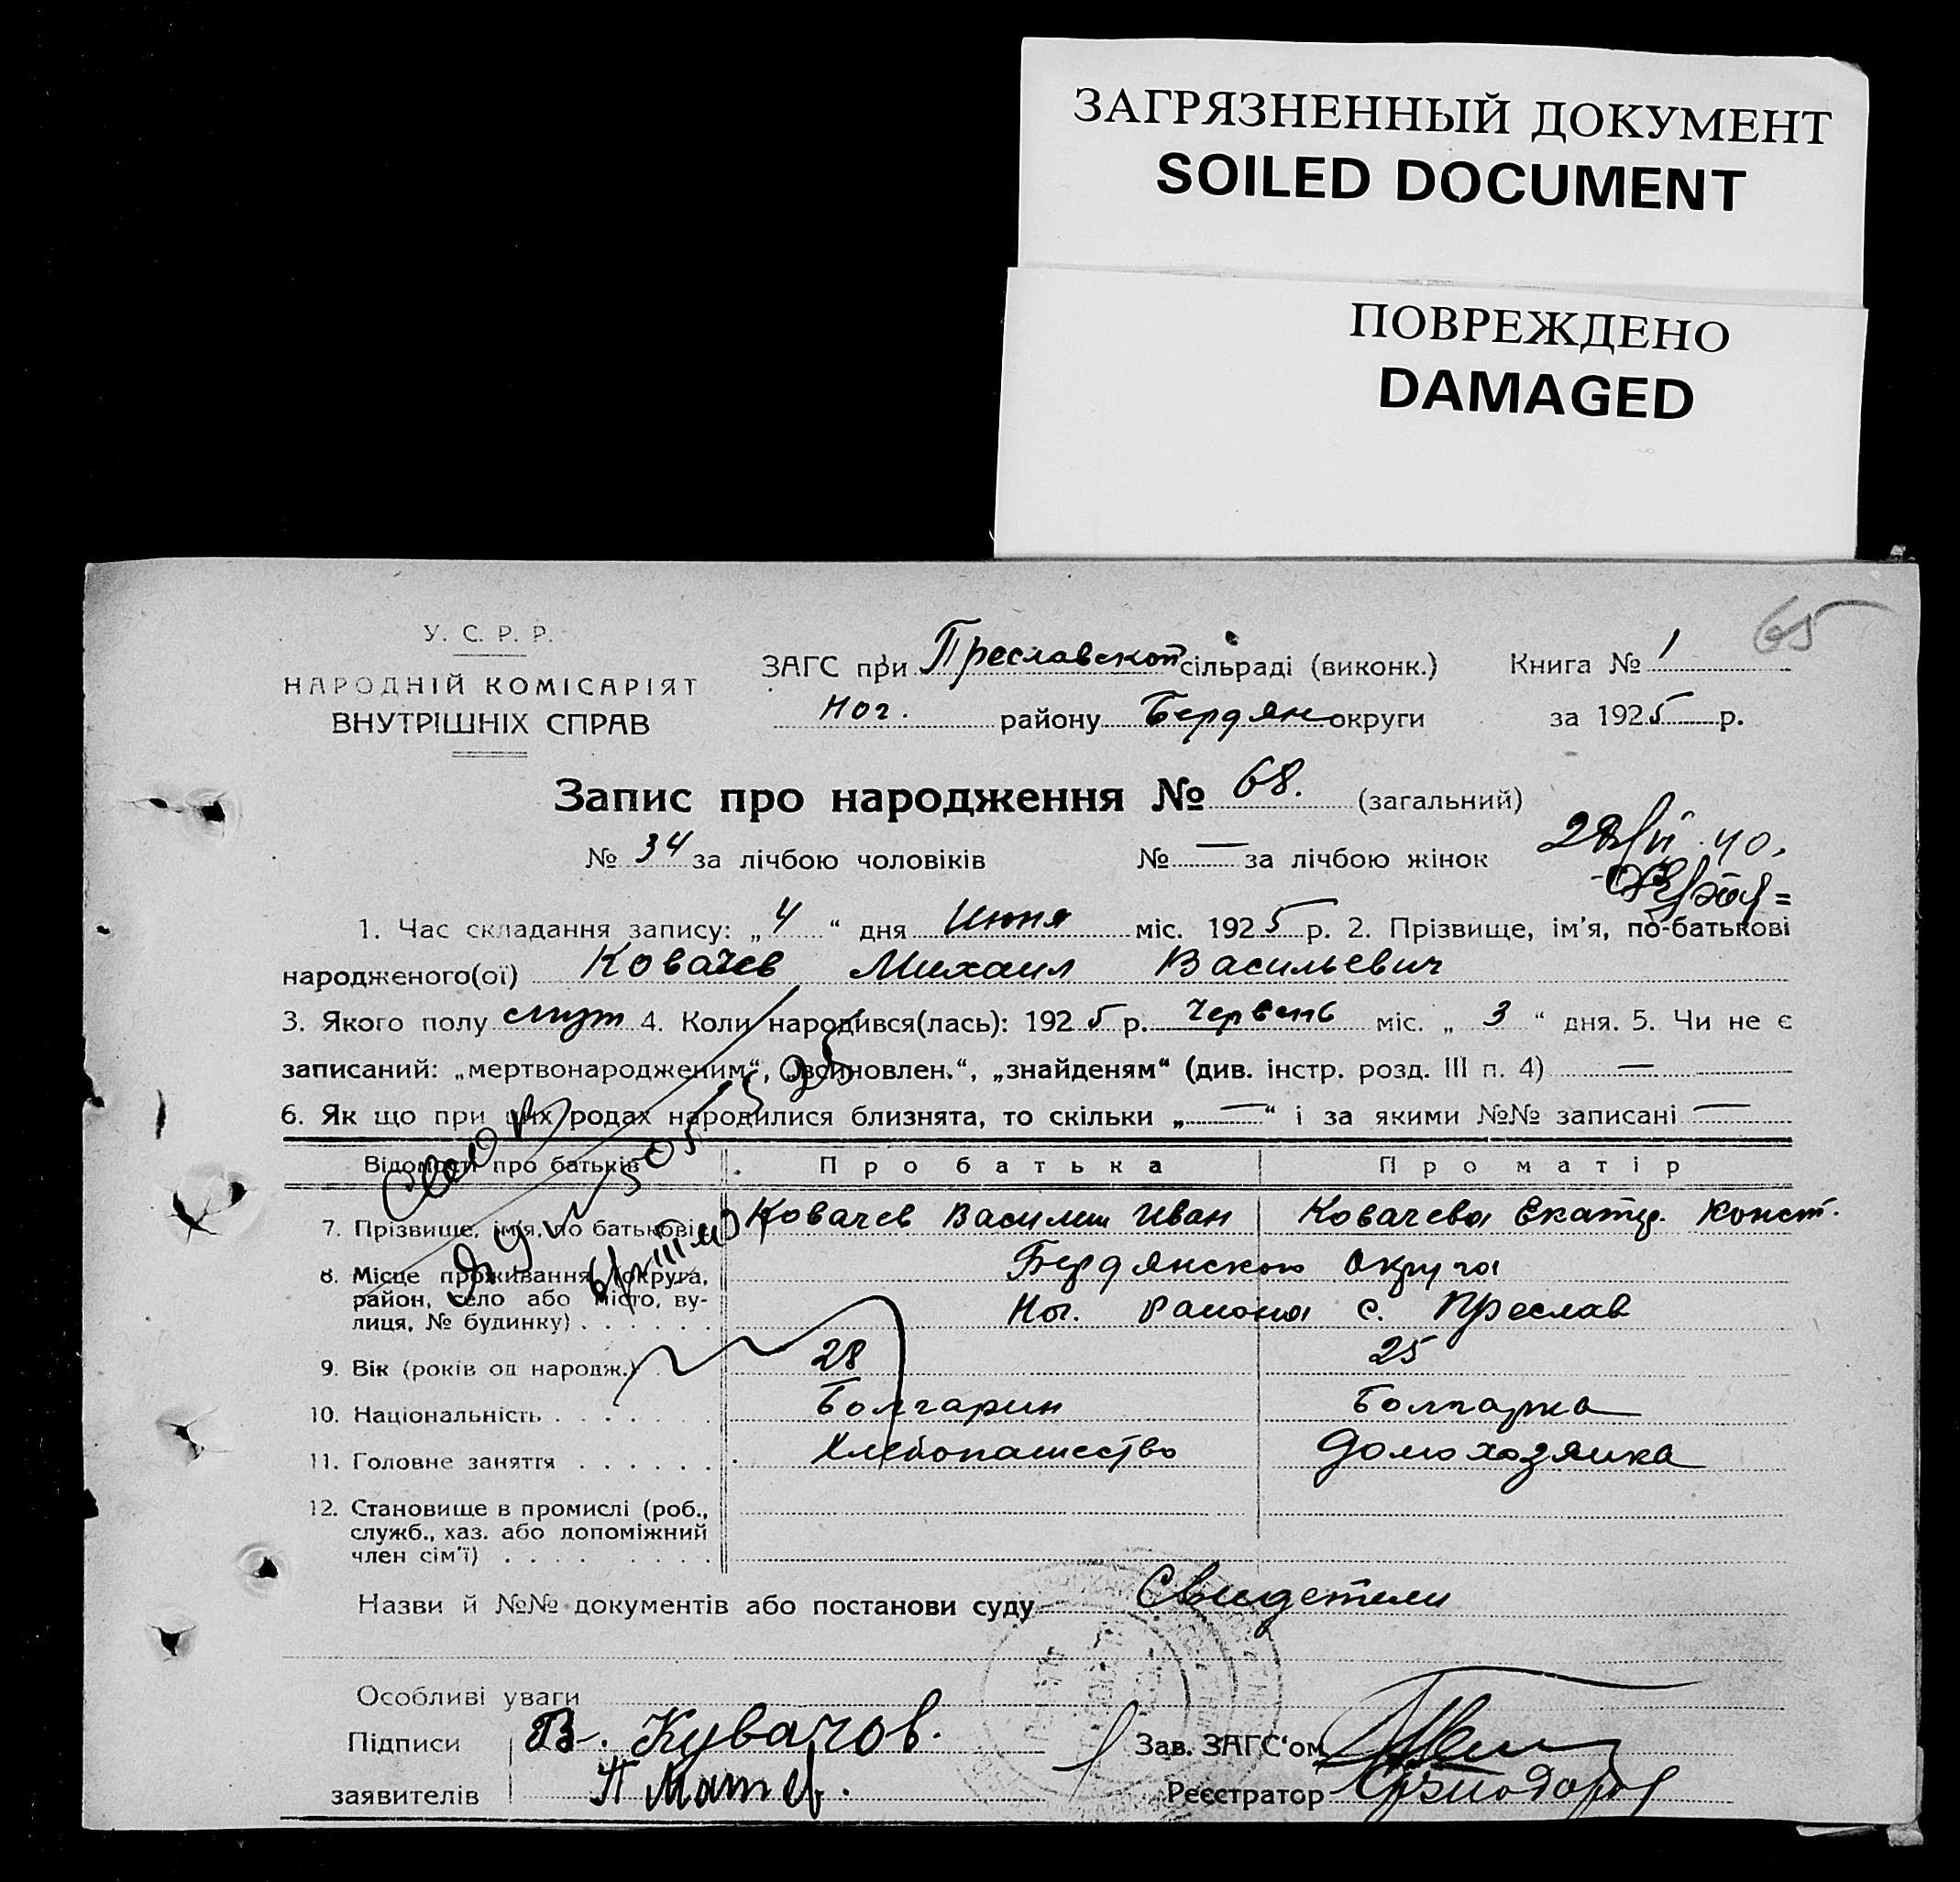 ЗАГРЯЗНЕННЫЙ ДОКУМЕНТ
SOILED DOCUMENT
ПОВРЕЖДЕНО
DAMAGED
65
У. С. Р. Р.
НАРОДНІЙ КОМІСАРІЯТ
ВНУТРІШНІХ СПРАВ
ЗАГС при Преславской сільраді (виконк.) Книга № 1
Ног. району Бердян округи за 1925 р.
Запис про народження № 68. (загальний)
№ 34 за лічбою чоловіків № — за лічбою жінок
1. Час складання запису: „4“ дня Июня міс. 1925 р. 2. Прізвище, ім'я, по-батькові
народженого(ої) Ковачев Михаил Васильевич
3. Якого полу муж 4. Коли народився(лась): 1925 р. Червень міс. „3“ дня. 5. Чи не є
записаний: „мертвонародженим“, „всиновлен.“, „знайденям“ (див. інстр. розд. III п. 4) —
6. Як що при цих родах народилися близнята, то скільки „—“ і за якими №№ записані —
Відомості про батьків Про батька Про матір
7. Прізвище, ім'я, по батькові Ковачев Василии Иван Ковачева Екатер. Конст.
8. Місце проживання (округа, Бердянского Округа
район, село або місто, ву-
лиця, № будинку) Ног. района с. Преслав
9. Вік (років од народж.) 28 25
10. Національність Болгарин Болгарка
11. Головне заняття Хлебопашество Домохозяика
12. Становище в промислі (роб.,
служб., хаз. або допоміжний
член сім'ї)
Назви й №№ документів або постанови суду Свидетели
Особливі уваги
Підписи В. Кувачов. Зав. ЗАГС'ом
заявителів П Матев. Реєстратор